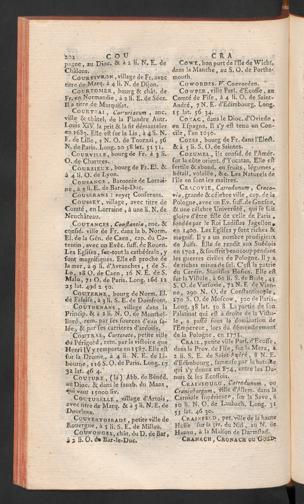 202 COU
pagne, au Dioc. & à 2 li. N. E. de
Châlons.
COURTIVRON, village de Fr. avec
titre de Marq. à 4 li. N. de Dijon.
COURTOMER, bourg & chât. de
Fr. en Normandie, à 2 li. E. de Séez.
Il a titre de Marquisat.
ville & châtel. de la Flandre Autr.
Louis XIV. la prit & la fit démanteler
en 1683. Elle est sur la Lis, à
N. de Long. 20. 58 lat.
COURVILLE, bourg de Fr. à
O. de Chartres.
COURZIEU, bourg de Fr. E. &
à 4 li. O. de Lyon.
COUSANCE, Baronnie de Lorraine,
à 2 li. E. de Bar-le-Duc.
COUSSERANS : voyez Conserans.
COUSSEY, village, avec titre de
Comté, en Lorraine, à une li. N. de
Neufchâteau.
COUTANCES,
consid. ville de Fr. dans la b. Norm.
El. de la Gén. de Caen,
avec un Evêc. suff. de Rouen.
Les Eglises, sur-tout la cathédrale,
sont magnifiques. Elle est proche de
la mer, à 9 li. d'Avranches,
O. de Caen, 16 N. E. de S.
Malo, 71 O. de Paris. Long. 16d 12
25 lat. 49d 2 50.
COUTERNE, bourg de Norm. El.
de Falaise,
village dans la
Princip. & à 2 li. N. O. de Montbelliard,
par les sources d'eau salée,
& par ses carrieres d'ardoises.
COUTRAS, petite ville
du Périgord, rem. par la victoire que
Henri IV y remporta en 1587. Elle est
sur la Dronne, à 4 li. N. E. de Libourne,
S. O. de Paris. Long. 17
32 lat. 46 4.
COUTURE, (la) Abb. de Bénéd.
au Dioc. & dans le fauxb. du Mans,
qui vaut 15000 liv.
COUTURELLE, village d'Artois,
avec titre de Marq. à 3 li. N. E. de
Dourlens.
COUVERTOIRADE, petite ville de
Rouergue, à 5 li. S. E. de Millau.
COUWONGES, chât. du D. de Bar,
à 2 li. O. de Bar-le-Duc.
CRA
COWE, bon port de l'Isle de Wicht,
dans la Manche, au S. O. de Portsmouth.
COWORDE. V. Coevorden.
COWPER, ville Parl. d'Ecosse, au
Comté de Fife, à 4 li. O. de Saint-
André, 7 N. E. d'Edimbourg. Long.
15 lat. 56 34.
COYAC, dans le Dioc. d'Oviedo
en Espagne. Il s'y est tenu un Concile,
l'an 1050.
COZES, bourg de Fr. dans l'Elect.
& à 5 li. S. O. de Saintes.
COZUMEL, Isle considé. de l'Amér.
sur la côte orient. d'Yucatan. Elle est
fertile & abond. en fruits, légumes,
bétail, volaille, &c. Les Naturels de
l'Isle en sont les maîtres.
CRACOVIE,
grande & célebre ville, cap. de la
Pologne, avec un Ev. suff. de Gnesne,
& une célebre Université, qui se fait
gloire d'être fille de celle de Paris,
fondée par le Roi Ladislas Jagellon
en 1400. Les Eglises y sont riches &
magnif. Il y a un nombre prodigieux
de Juifs. Elle se rendit aux Suédois
en 1702, & souffrit beaucoup pendant
les guerres civiles de Pologne. Il y a
de riches mines de sel. C'est la patrie
de Stanislas Hosius. Elle est
sur la Vistule, à 60 li. S. de
S. O. de Varsovie, 72 N. E. de Vienne,
290 N. O. de Constantinople,
270 S. O. de Moscow, 300 de Paris.
Long. 38 lat. 50 8. La partie de son
Palatinat qui est à droite de la Vistule,
a passé sous la domination de
l'Empereur, lors du démembrement
de la Pologne, en 1773.
CRAIL, petite ville Parl. d'Ecosse,
dans la Prov. de Fife, sur la Mer, à
2 li. S. E. de Saint-André, 8 N. E.
d'Edimbourg, fameuse par la bataille
qui s'y donna en 874, entre les Danois
& les Ecossois.
CRAINBOURG, Carodunum, ou
ville d'Allem. dans la
Carniole supérieure, sur la Save, à
10 li. N. O. de Laubach. Long. 31
55 lat. 46 30.
CRAINFELD, pet. ville de la haute
Hesse sur la riv. du Nid, au N. de
Hanau, à la Maison de Darmstad.
CRANACH, CRONACH ou GOLD-